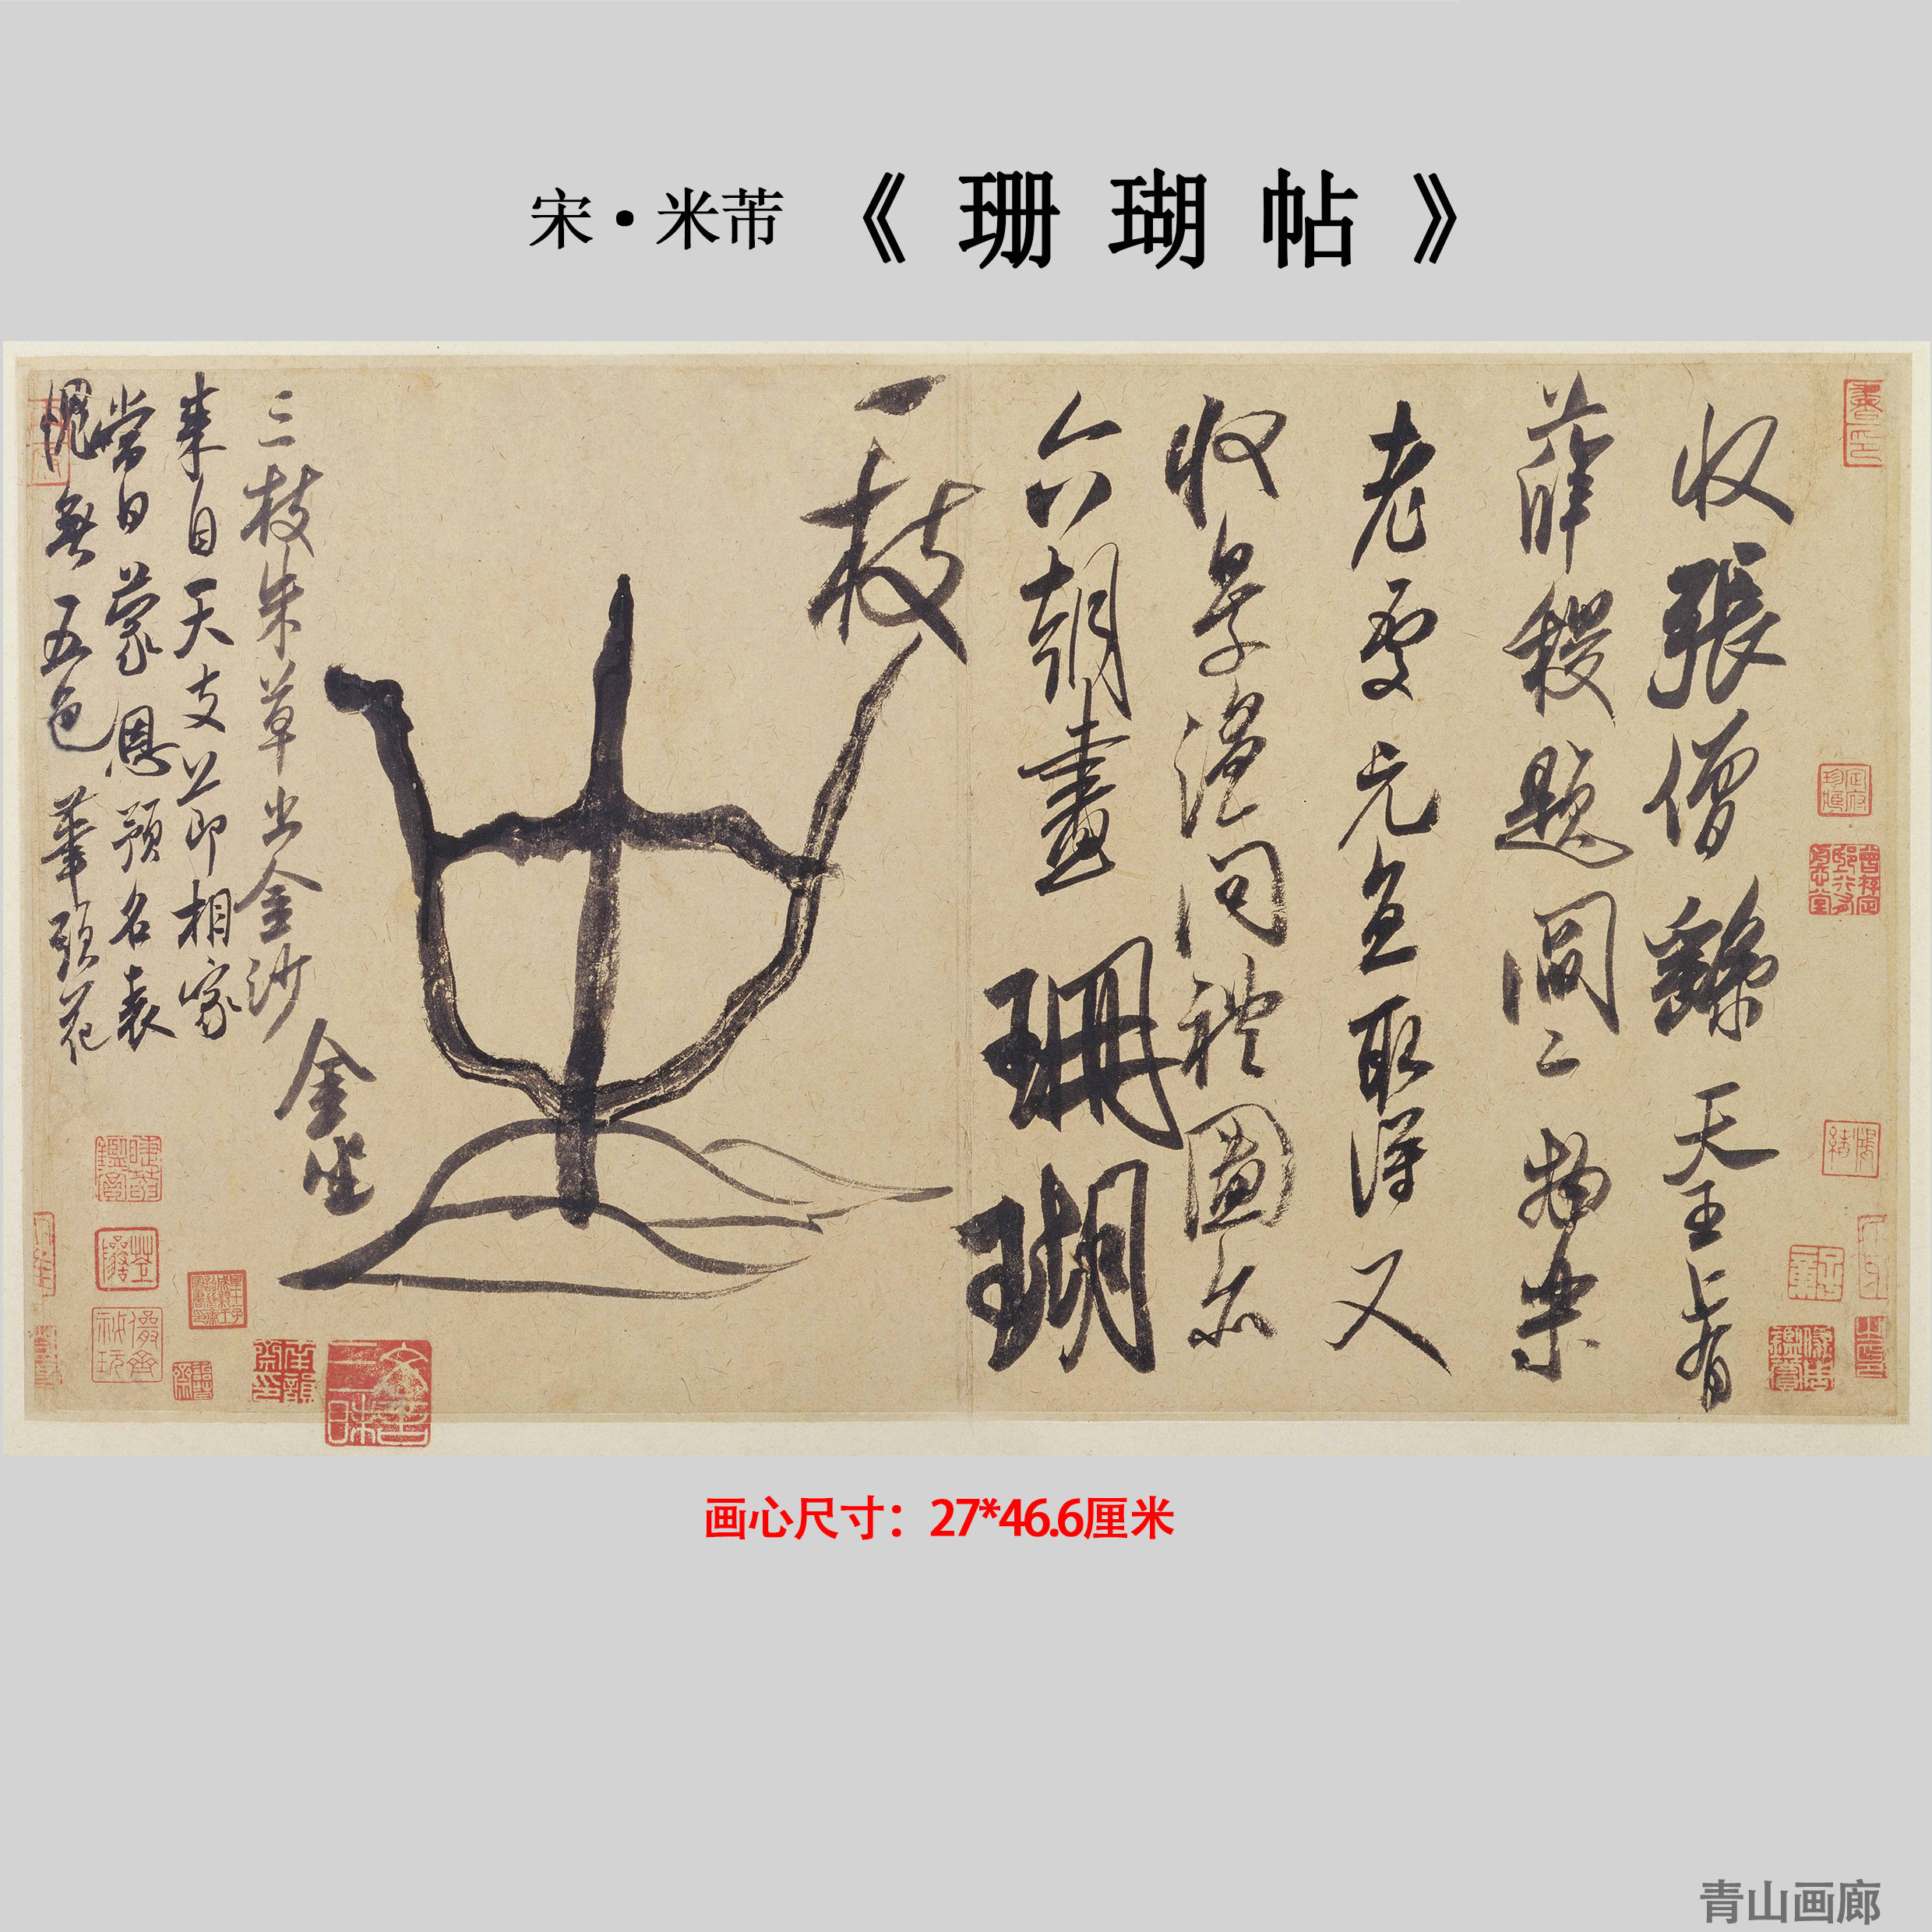 宋·米芾《珊瑚帖》
收張僧繇天王上有
薛稷題閻二物樂
老處元直取得又
收景溫問禮圖亦
六朝畫珊瑚
一枝
金坐
三枝朱草出金沙
来自天支节相家
當日蒙恩預名表
愧無五色筆頭花
画心尺寸：27*46.6厘米
青山画廊